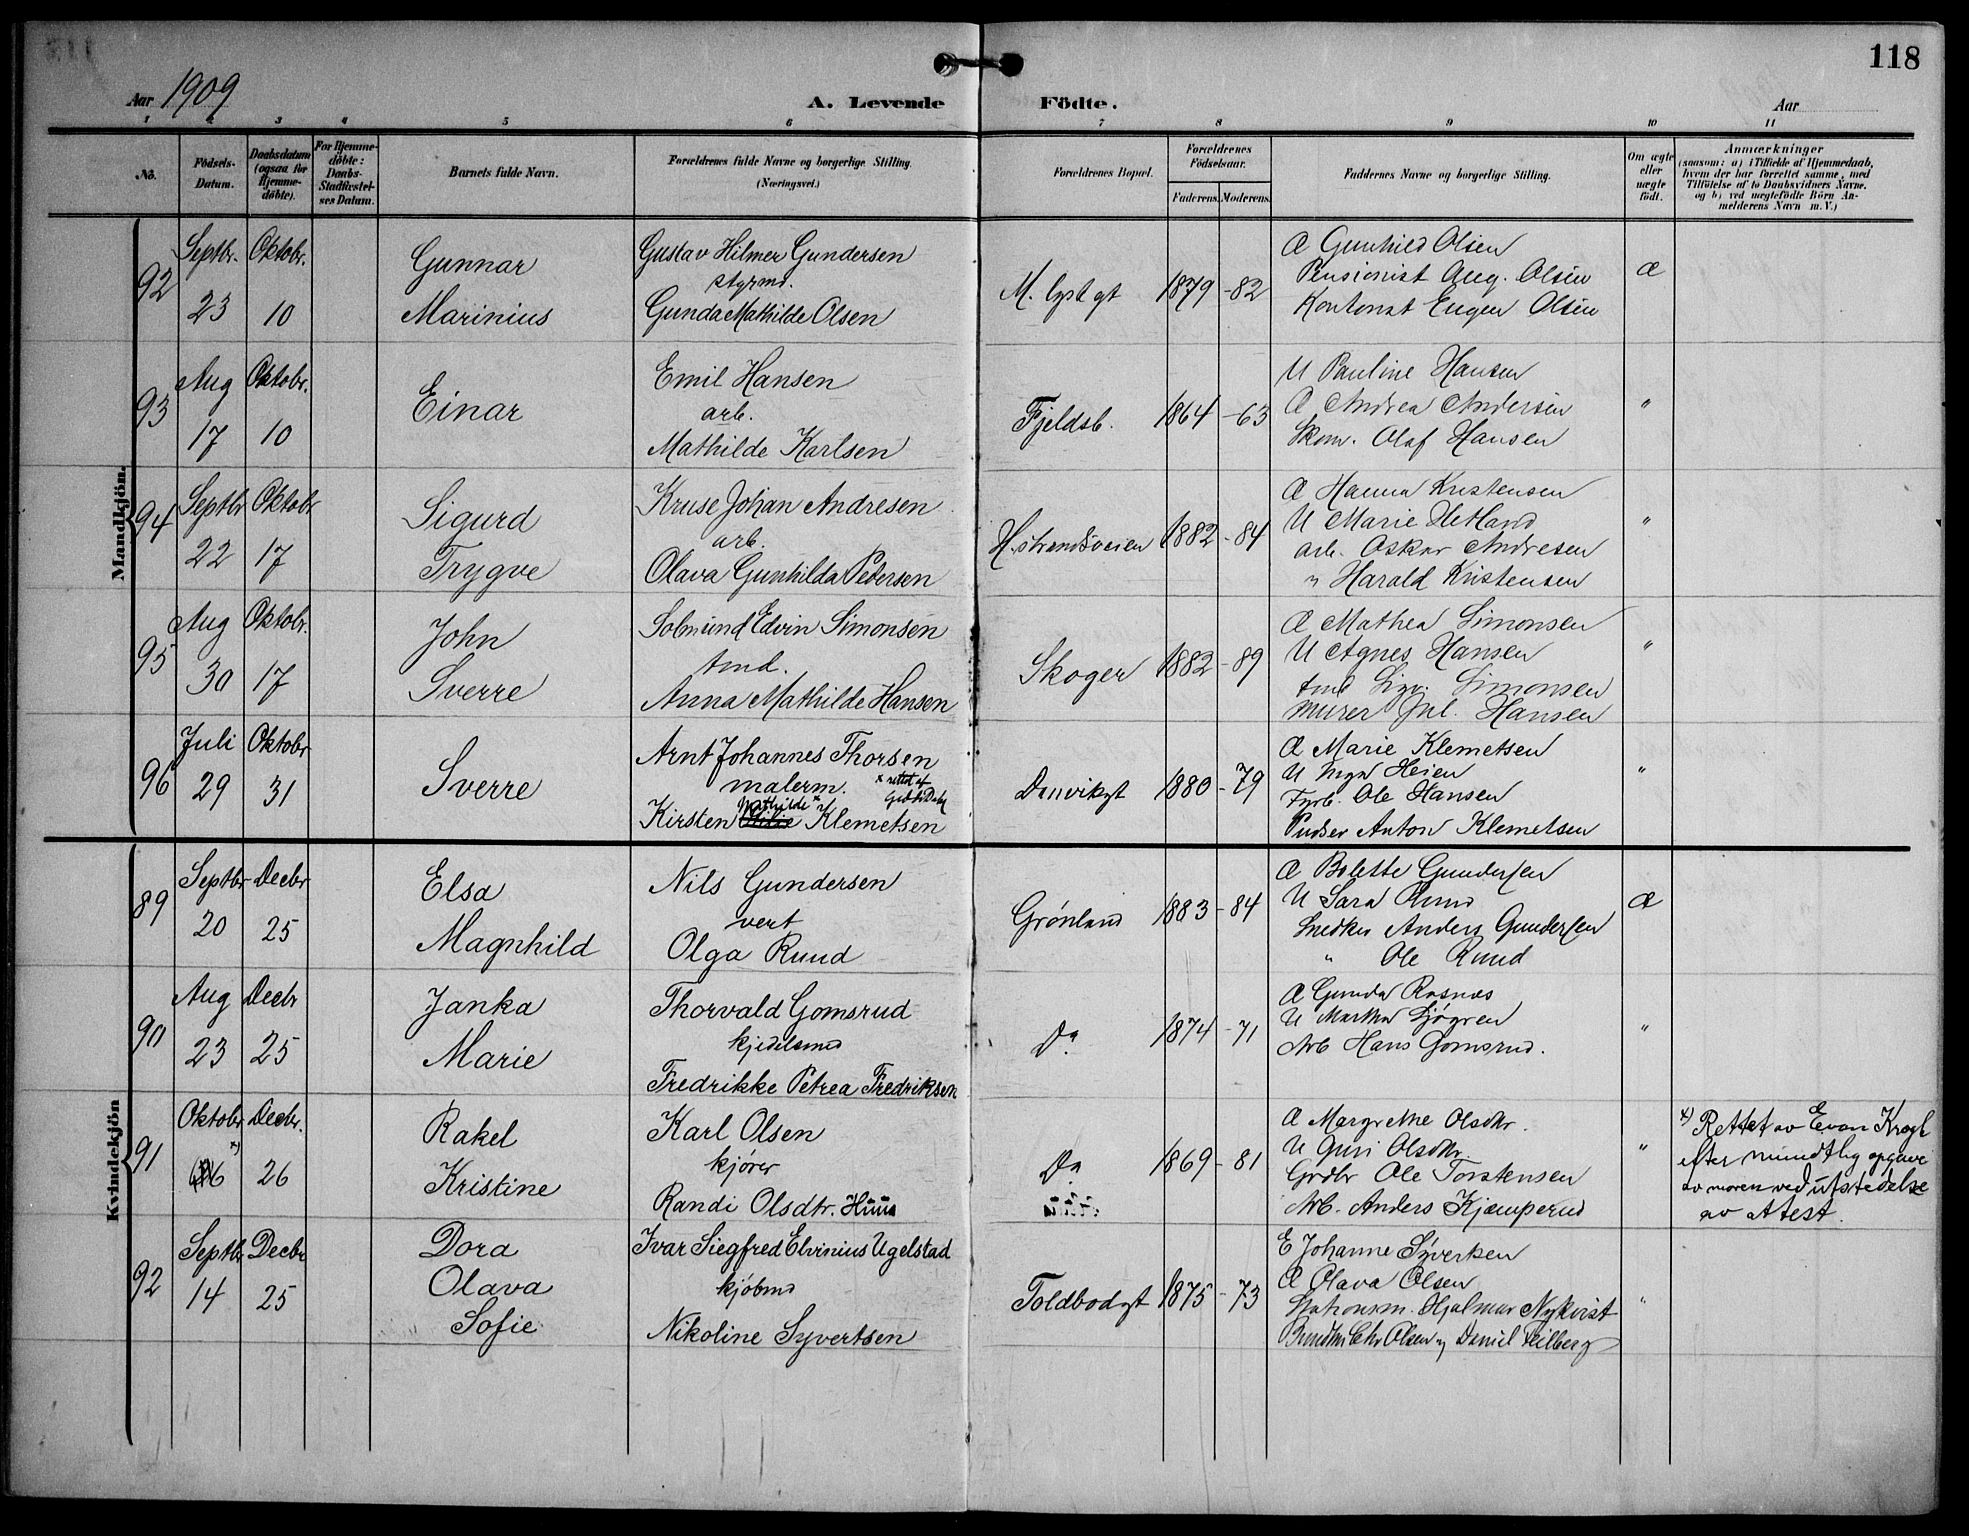 118
Aar 1909
A. Levende Födte.
Aar
1 2 3 4 5 6 7 8 9 10 11
No.
Födsels-Datum.
Daabsdatum (ogsaa for Hjemme-döbte).
For Hjemme-döbte: Daabs-Stadfæstel-ses Datum.
Barnets fulde Navn.
Forældrenes fulde Navne og borgerlige Stilling. (Næringsvei.)
Forældrenes Bopæl.
Forældrenes Födselsaar.
Faderens. Moderens.
Faddernes Navne og borgerlige Stilling.
Om ægte eller uægte födt.
Anmærkninger
(saasom: a) i Tilfælde af Hjemmedaab,
hvem der har forrettet samme, med
Tilföielse af to Daabsvidners Navne.
og b) ved uægtefödte Börn An-
melderens Navn m. V.)
Mandkjön.
92 Septbr. 23 Oktobr. 10
Gunnar
Marinius
Gustav Hilmer Gundersen
styrmd.
Gunda Mathilde Olsen
M. lystgt 1879 -82
Æ Gunhild Olsen
Pensionist Aug. Olsen
Kontorist Eugen Olsen
Æ
93 Aug 17 Oktobr. 10
Einar
Emil Hansen
arb.
Mathilde Karlsen
Fjeldsb. 1864 -63
U Pauline Hansen
Æ Andrea Andersen
Skom. Olaf Hansen
"
94 Septbr 22 Oktobr 17
Sigurd
Trygve
Kruse Johan Andresen
arb.
Olava Gunhilda Pedersen
H.strandsveien 1882 -84
Æ Hanna Kristensen
U Marie Hetland
arb. Oskar Andresen
" Harald Kristensen
"
95 Aug 30 Oktobr. 17
John
Sverre
Solmund Edvin Simonsen
tmd.
Anna Mathilde Hansen
Skoger 1882 -89
Æ Mathea Simonsen
U Agnes Hansen
Simonsen
murer Jul. Hansen
"
96 Juli 29 Oktobr 31
Sverre
Arnt Johannes Thorsen
malerm.
x rettet af
Kirsten Mathilde x Klemetsen
Danvikgt 1880 -79
Æ Marie Klemetsen
U Heien
Fyrb. Ole Hansen
Pudser Anton Klemetsen
"
Kvindekjön
89 Septbr 20 Decbr 25
Elsa
Magnhild
Nils Gundersen
vert
Olga Ruud
Grönland 1883 -84
Æ Bolette Gundersen
U Sara Ruud
Snedker Anders Gundersen
" Ole Ruud
Æ
90 Aug 23 Decbr 25
Janka
Marie
Thorvald Gomsrud
kjedelsmed
Fredrikke Petrea Fredriksen
Do 1874 -71
Æ Gunda Rosnæs
U Martha Sjøgren
Arb Hans Gomsrud.
"
91 Oktobr x) 6 Decbr. 26
Rakel
Kristine
Karl Olsen
kjører
Randi Olsdtr. Huus
Do 1869 -81
Æ Margrethe Olsdtr.
U Guri Olsdtr.
Grdbr Ole Torstensen
Arb. Anders Kjæmperud
"
x) Rettet av Evan Krogh
efter mundtlig opgave
av moren ved utstedelse
av attest.
92 Septbr 14 Decbr 25
Dora
Olava
Sofie
Ivar Siegfred Elvinius Ugelstad
kjøbmd
Nikoline Syvertsen
Toldbodgt 1875 -73
E Johanne Syvertsen
Æ Olava Olsen
Stationsm. Hjalmar Nykvist
Chr Olsen og Daniel Heilberg
"